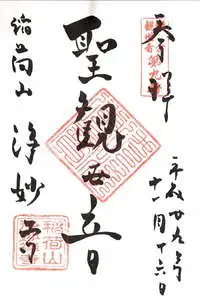 奉拝
観世音第九
平成廿九年
十一月十六日
聖観世音
稲荷山 浄妙寺
稲荷山